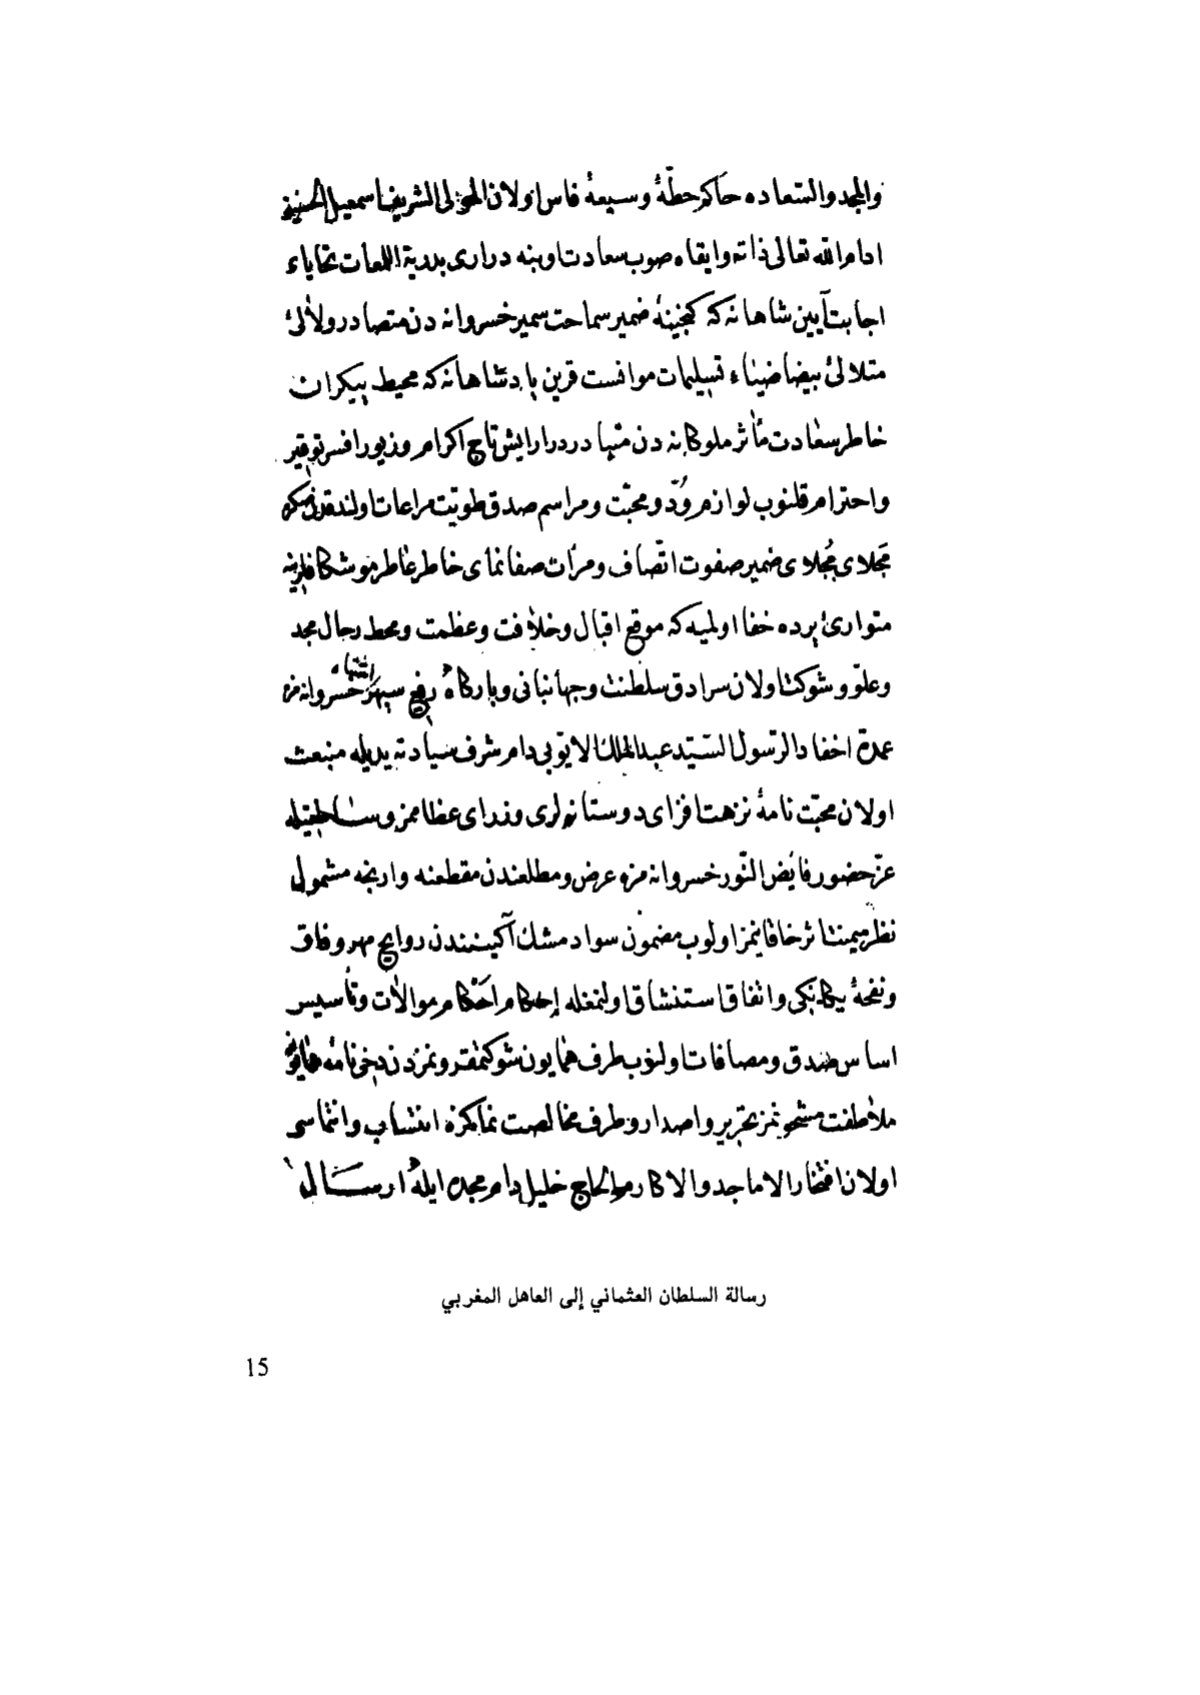 والمجد والسّعاده حاكم خطّۀ وسیعۀ فاس اولان المولى الشریف اسمعیل الحسنی
ادام الله تعالى ذاته وابقاه صوب سعادت اوبنه دراری بدریة اللمعات تحایاء
اجابت آیین شاهانه که کنجینۀ ضمیر سماحت سمیر خسروانه دن متصادر ولآلئ
متلالئ بیضا ضیاء تسلیمات موانست قرین پادشاهانه که محیط بیکران
خاطر سعادت مآثر ملوکانه دن متبادر در آرایش تاج اکرام وزیور افسر توقیر
واحترام قلنوب لوازم ودّ ومحبّت ومراسم صدق طویّت مراعات اولندقدن صکره
مجلای مُجلای ضمیر صفوت اتّصاف ومرأت صفانمای خاطر عاطر موشکافلرینه
متوارئ پرده خفا اولمیه که موقع اقبال وخلافت وعظمت ومحط رجال مجد
وعلوّ وشوکت اولان سرادق سلطنت وجهانبانی وبارکاه رفیع سپهر انتباه خسروانه مزه
عمدة احفاد الرسول السّید عبد الملك الایوبی دام شرف سیادته یدیله منبعث
اولان محبّت نامۀ نزهت افزای دوستانه لری وزرای عظاممز وساطتیله
عزّ حضور فایض النّور خسروانه مزه عرض ومطلعندن مقطعنه وارنجه مشمول
نظر میمنت اثر خاقانیمز اولوب مضمون سواد مشك آکینندن روایح مهر وفاق
ونفحۀ یکانکی واتفاق استنشاق اولنمغله إحکام احکام موالات وتأسیس
اساس صدق ومصافات اولنوب طرف همایون شوکتمقرونمزدن دخی نامۀ همایون
ملاطفت مشحونمز تحریر واصدار وطرف مخالصت نماکزه انتساب وانتماسی
اولان افتخار الاماجد والاکارم الحاج خلیل دام مجده ایله ارسال
رسالة السلطان العثماني إلى العاهل المغربي
15